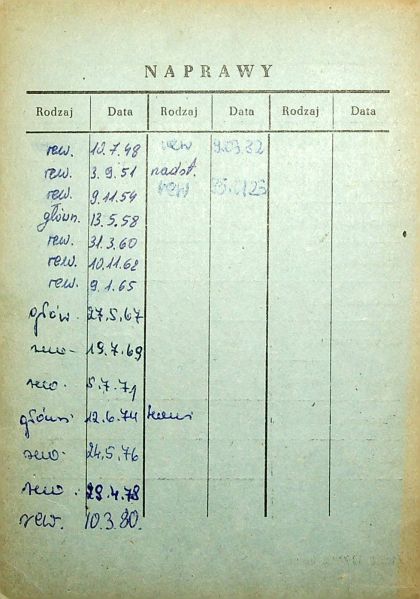 NAPRAWY
Rodzaj Data Rodzaj Data Rodzaj Data
rew. 12.7.48 rew 9.03.82
rew. 3.9.51 nadst.
rew. 9.11.54 rew
główn. 13.5.58
rew. 31.3.60
rew. 10.11.62
rew. 9.1.65
główn. 27.5.67
rew. 19.7.69
rew. 5.7.71
główn 12.6.74
rew. 24.5.76
rew. 28.4.78
rew. 10.3.80.